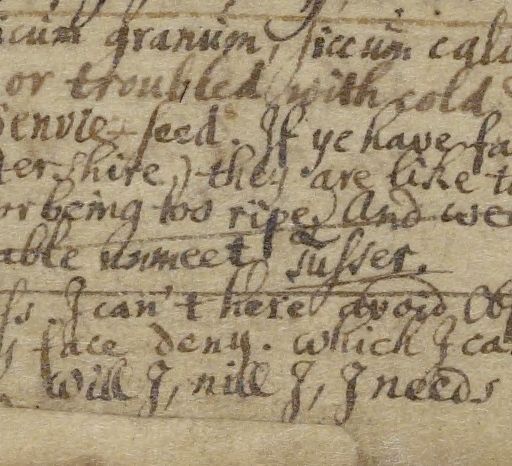 icum granum, siccum cali
or troubled with cold
Senvie seed. If ye have fa
ter shire) they are like t
or being too ripe) And we
able unmeet Susser.
ss. I can't here avoid Ob
face deny. which I ca
will I, nill I, I needs